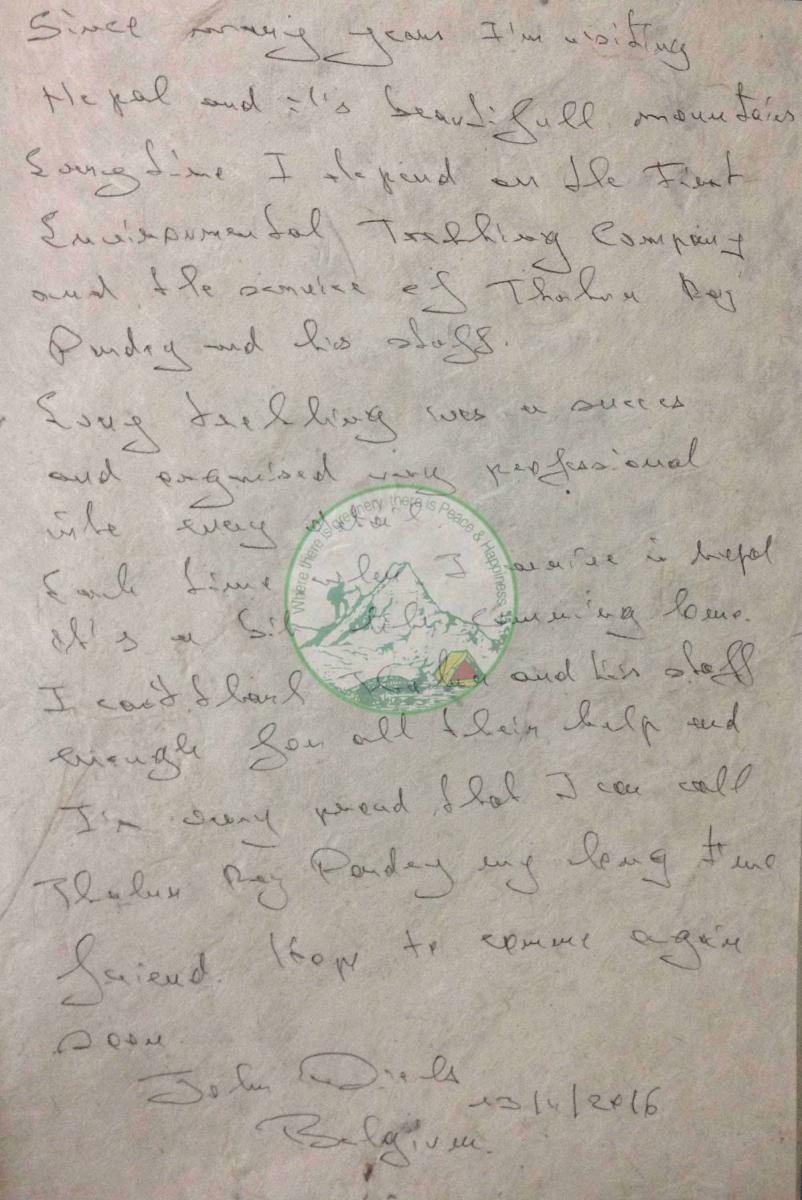 Since many years I'm visiting
Nepal and it's beautifull mountains
Everytime I depend on the First
Environmental Trekking Company
and the service of Thakur Raj
Pandey and his staff.
Every trekking was a succes
and organised very professional
into every detail
Each time when I arrive in nepal
it's a bit like comming home.
I can't thank Thakur and his staff
enough for all their help and
I'm very proud that I can call
Thakur Raj Pandey my long time
friend. Hope to comme again
soon.
John Diels
13/4/2016
Belgium.
Where there is greenery, there is Peace & Happiness